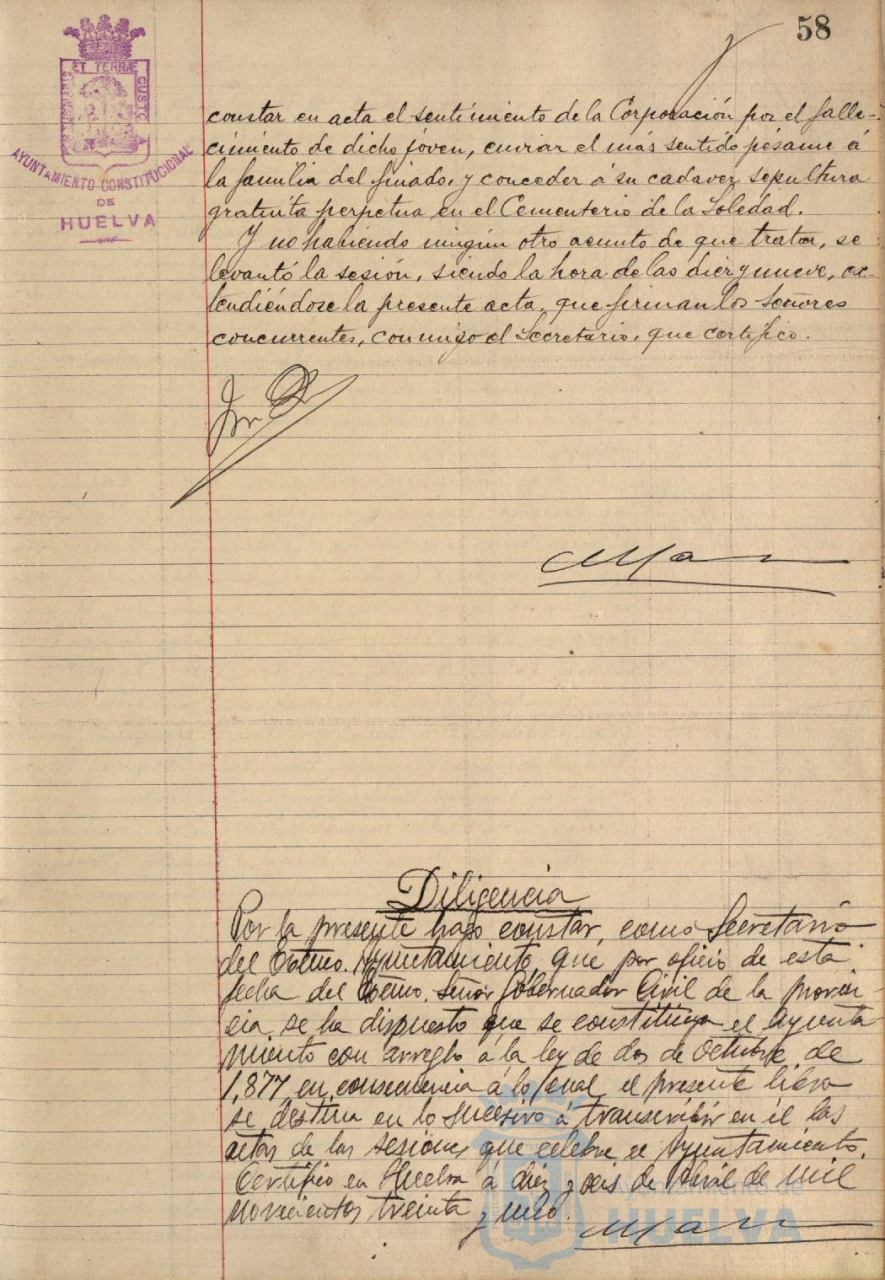 58
ET TERRÆ CUSTO
AYUNTAMIENTO CONSTITUCIONAL
DE
HUELVA
constar en acta el sentimiento de la Corporación por el falle-
cimiento de dicho jóven, enviar el más sentido pésame á
la familia del finado, y conceder á su cadaver sepultura
gratuita perpetua en el Cementerio de la Soledad.
Y no habiendo ningún otro asunto de que tratar, se
levantó la sesión, siendo la hora de las diez y nueve, ex-
tendiéndose la presente acta, que firman los Señores
concurrentes, conmigo el Secretario, que certifico.
Diligencia
Por la presente hago constar, como Secretario
del Excmo. Ayuntamiento, que por oficio de esta
fecha del Excmo. Señor Gobernador Civil de la provin-
cia, se ha dispuesto que se constituya el Ayunta
miento con arreglo á la ley de dos de Octubre de
1,877 en consecuencia á lo cual el presente libro
se destina en lo sucesivo á transcribir en él las
actas de las sesiones que celebre el Ayuntamiento.
Certifico en Huelva á diez y seis de Abril de mil
novecientos treinta y uno.
Ayuntamiento de
HUELVA